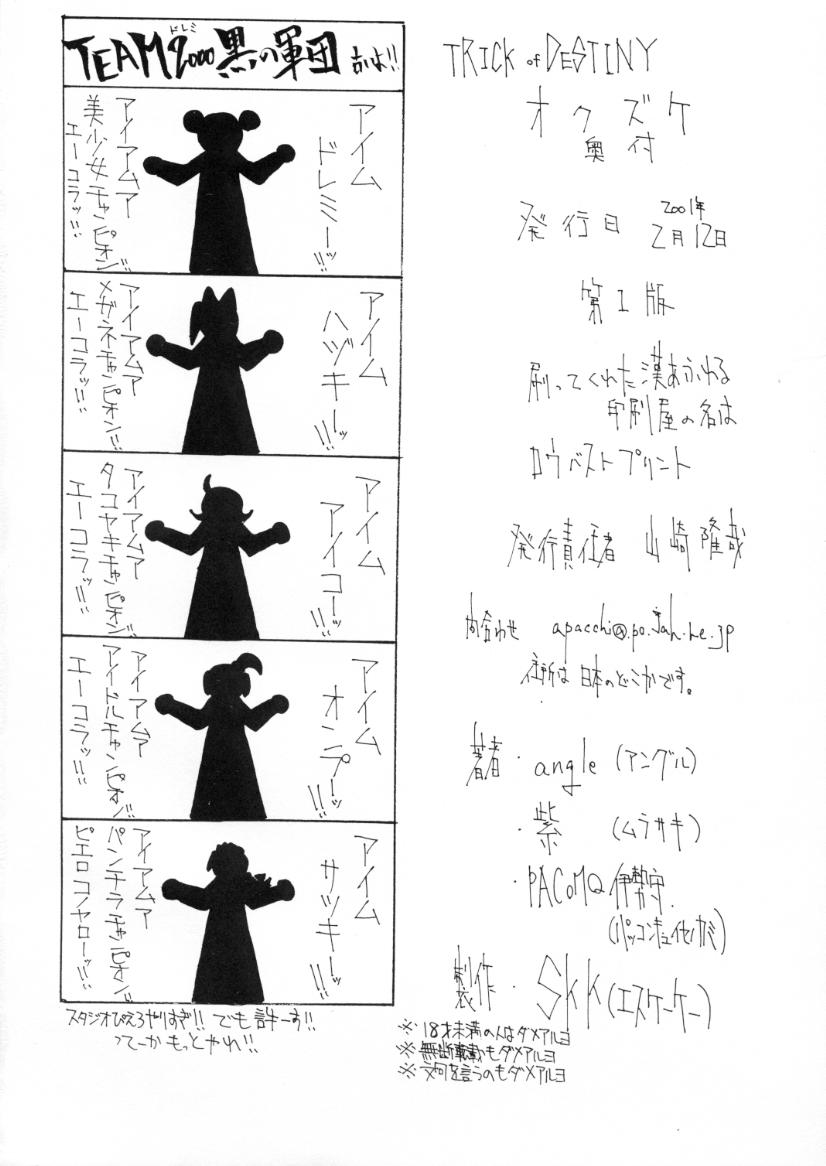 TEAMドレミ2000黒の軍団 かよ!!
アイム
ドレミーッ!!
アイアムア
美少女チャンピオン!!
エーコラッ!!!
アイム
ハヅキーッ!!!
アイアムア
メガネチャンピオン!!
エーコラッ!!!
アイム
アイコーッ!!!
アイアムア
タコヤキチャンピオン!!
エーコラッ!!!
アイム
オンプーッ!!!
アイアムア
アイドルチャンピオン!!
エーコラッ!!!
アイム
サツキーッ!!!
アイアムア
パンチラチャンピオン!!
ピエロコノヤローッ!!!
スタジオぴえろやりすぎ!! でも許ーす!!
ってーかもっとやれ!!
TRICK of DESTINY
オクズケ
奥付
発行日 2001年
2月12日
第1版
刷ってくれた漢あふれる
印刷屋の名は
ロウバストプリント
発行責任者 山崎隆哉
問合わせ apacchi@po.jah.ne.jp
住所は日本のどこかです。
著者・angle(アングル)
・紫 (ムラサキ)
・PACOMQ伊勢守
(パッコンキュイセノカミ)
製作・SKK(エスケーケー)
※18才未満の人はダメアルヨ
※無断転載もダメアルヨ
※文句を言うのもダメアルヨ